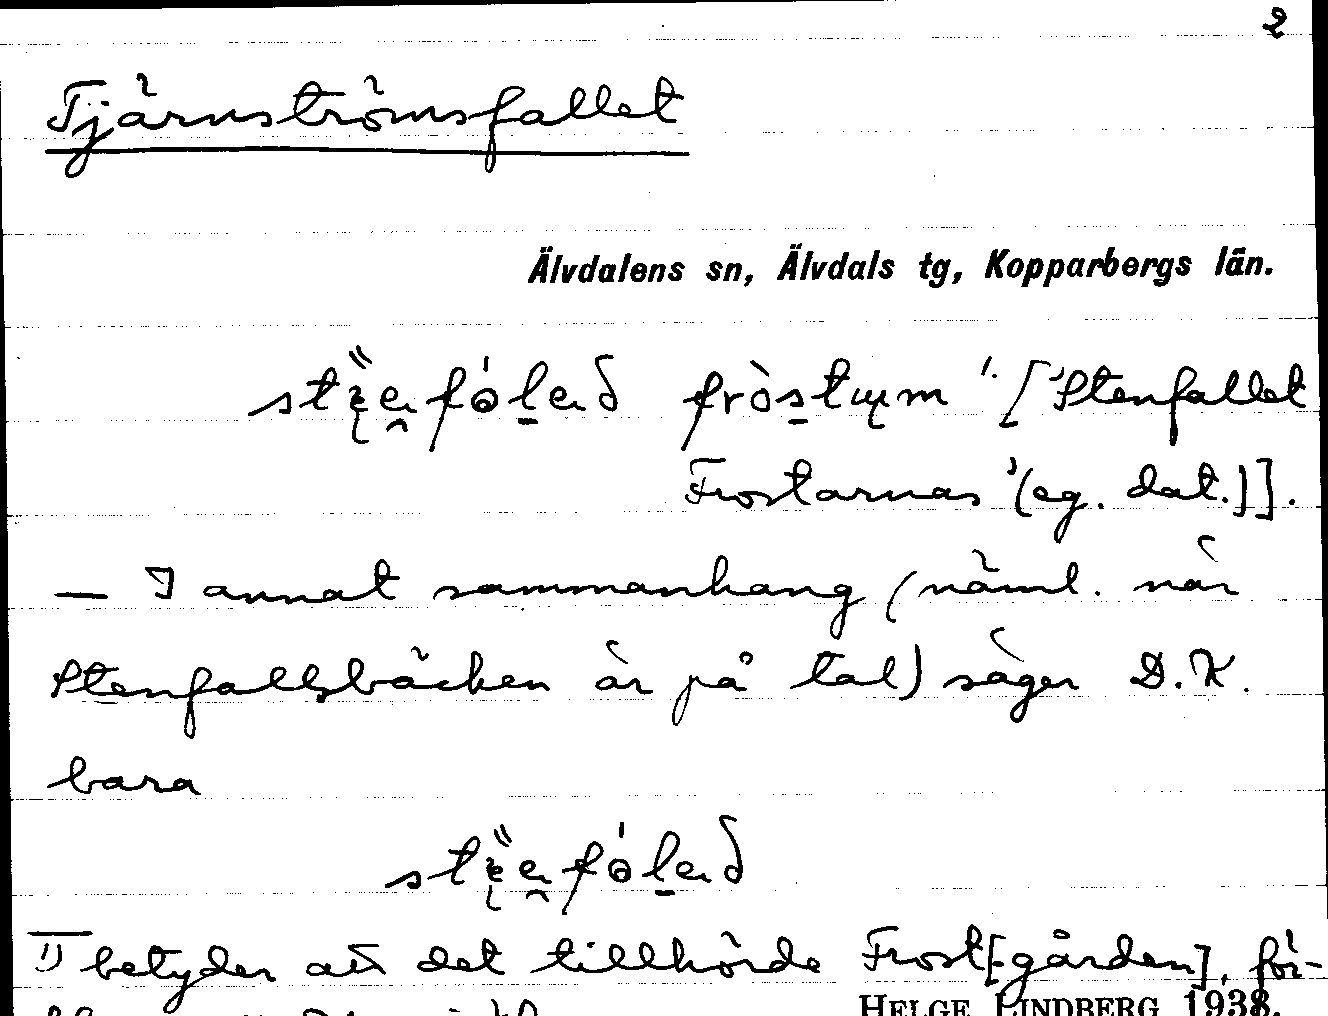 2
Tjärnströmsfallet
Älvdalens sn, Älvdals tg, Kopparbergs län.
['Stenfallet
Frostarnas' (eg. dat.)].
— I annat sammanhang (näml. när
Stenfallsbäcken är på tal) säger D.K.
bara
1) betyder att det tillhörde Frost[gården], för-
HELGE LINDBERG 1938.